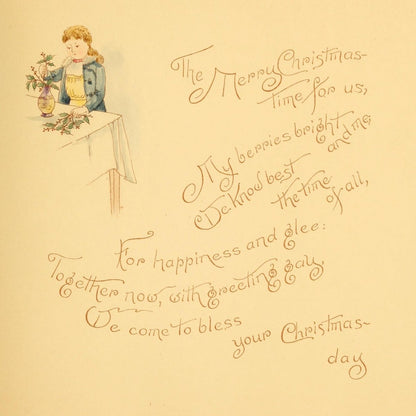 The Merry Christmas-
time for us,
My berries bright and me,
We know best the time of all,
For happiness and glee:
Together now, with greeting gay,
We come to bless your Christmas-
day